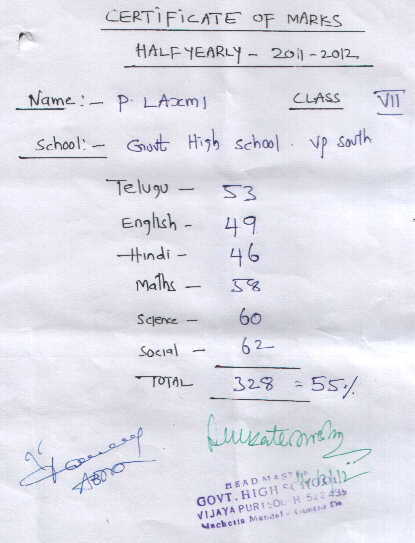 CERTIFICATE OF MARKS
HALF YEARLY - 2011-2012
Name:- P. LAXMI CLASS VII
School:- Govtt High School. VP South
Telugu - 53
English - 49
Hindi - 46
Maths - 58
Science - 60
Social - 62
TOTAL 328 = 55%
HEAD MASTER
GOVT. HIGH SCHOOL
VIJAYAPURI SOUTH 522 439
Macherla Mandal - Guntur Dt.